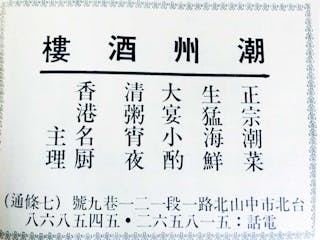 潮州酒樓
正宗潮菜
生猛海鮮
大宴小酌
清粥宵夜
香港名厨
主理
台北市中山北路一段一二一巷九號（七條通）
電話：五一八五六二•五四五八六八